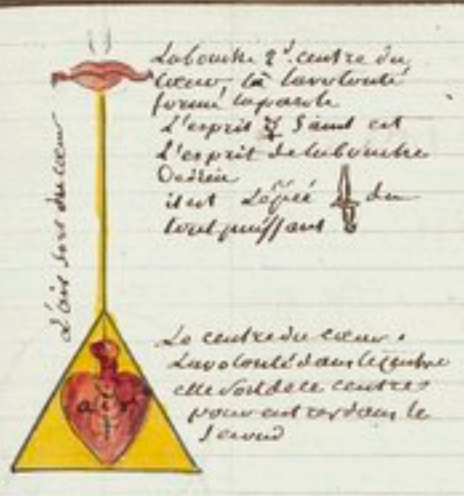 La bouche 2d. centre du
cœur là la volonté
forme la parole
L'esprit Saint est
L'esprit de la bouche
Divin
il est L'épée du
tout puissant
L'air sort du cœur
Le centre du cœur.
La volonté dans le centre
elle sort de ce centre
pour entrer dans le
Second